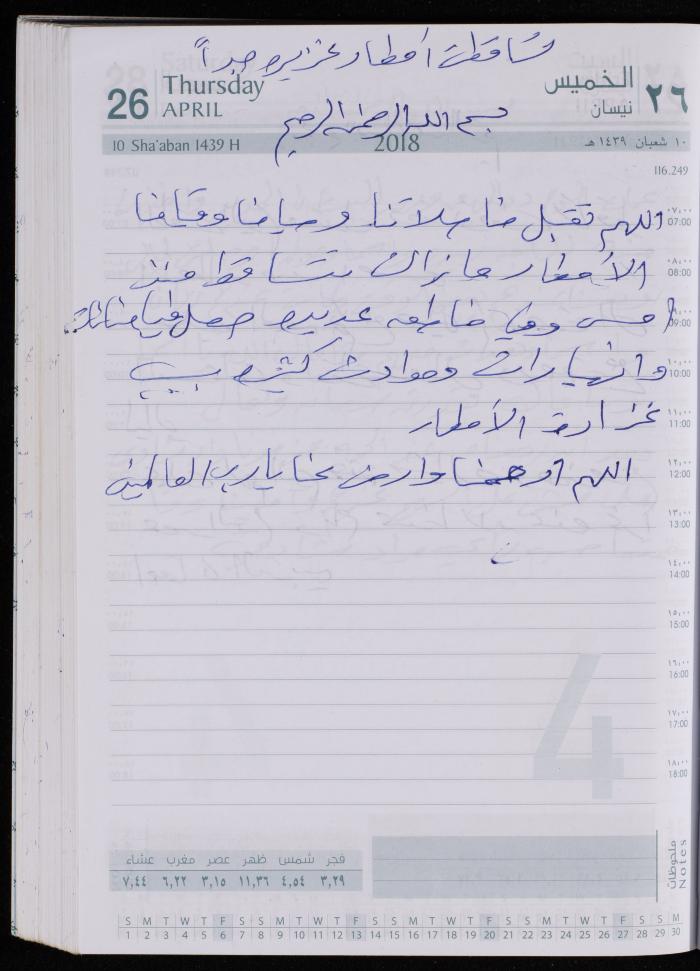 تساقطت أمطار غزيره جداً
26 Thursday APRIL
الخميس ٢٦ نيسان
بسم الله الرحمن الرحيم
10 Sha'aban 1439 H 2018 ١٠ شعبان ١٤٣٩ هـ
116.249
اللهم تقبل منا صلاتنا وصيامنا وقيامنا
٠٧,٠٠ 07:00
الأمطار ما زالت تتساقط منذ
٠٨,٠٠ 08:00
امس وفي مناطق عديده حصل فيضانات
٠٩,٠٠ 09:00
وانهيارات وحوادث كثيره بسبب
١٠,٠٠ 10:00
غزارة الأمطار
١١,٠٠ 11:00
اللهم ارحمنا وارض عنا يا رب العالمين
١٢,٠٠ 12:00
١٣,٠٠ 13:00
١٤,٠٠ 14:00
١٥,٠٠ 15:00
١٦,٠٠ 16:00
١٧,٠٠ 17:00
١٨,٠٠ 18:00
4
ملحوظات Notes
فجر شمس ظهر عصر مغرب عشاء
٣,٢٩ ٤,٥٤ ١١,٣٦ ٣,١٥ ٦,٢٢ ٧,٤٤
S M T W T F S S M T W T F S S M T W T F S S M T W T F S S M
1 2 3 4 5 6 7 8 9 10 11 12 13 14 15 16 17 18 19 20 21 22 23 24 25 26 27 28 29 30